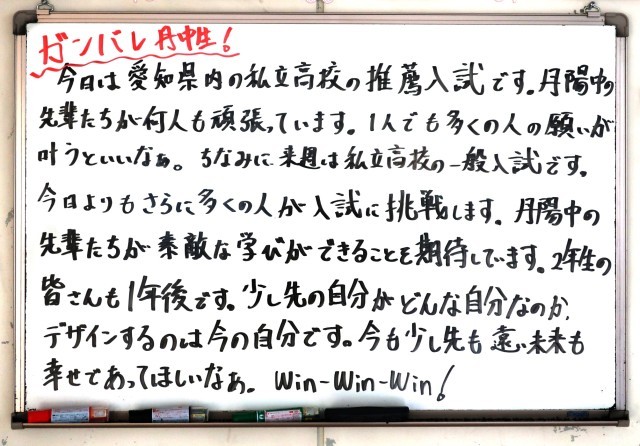 ガンバレ丹中生！
今日は愛知県内の私立高校の推薦入試です。丹陽中の
先輩たちが何人も頑張っています。1人でも多くの人の願いが
叶うといいなぁ。ちなみに来週は私立高校の一般入試です。
今日よりもさらに多くの人が入試に挑戦します。丹陽中の
先輩たちが素敵な学びができることを期待しています。2年生の
皆さんも1年後です。少し先の自分がどんな自分なのか、
デザインするのは今の自分です。今も少し先も遠い未来も
幸せであってほしいなぁ。Win-Win-Win！